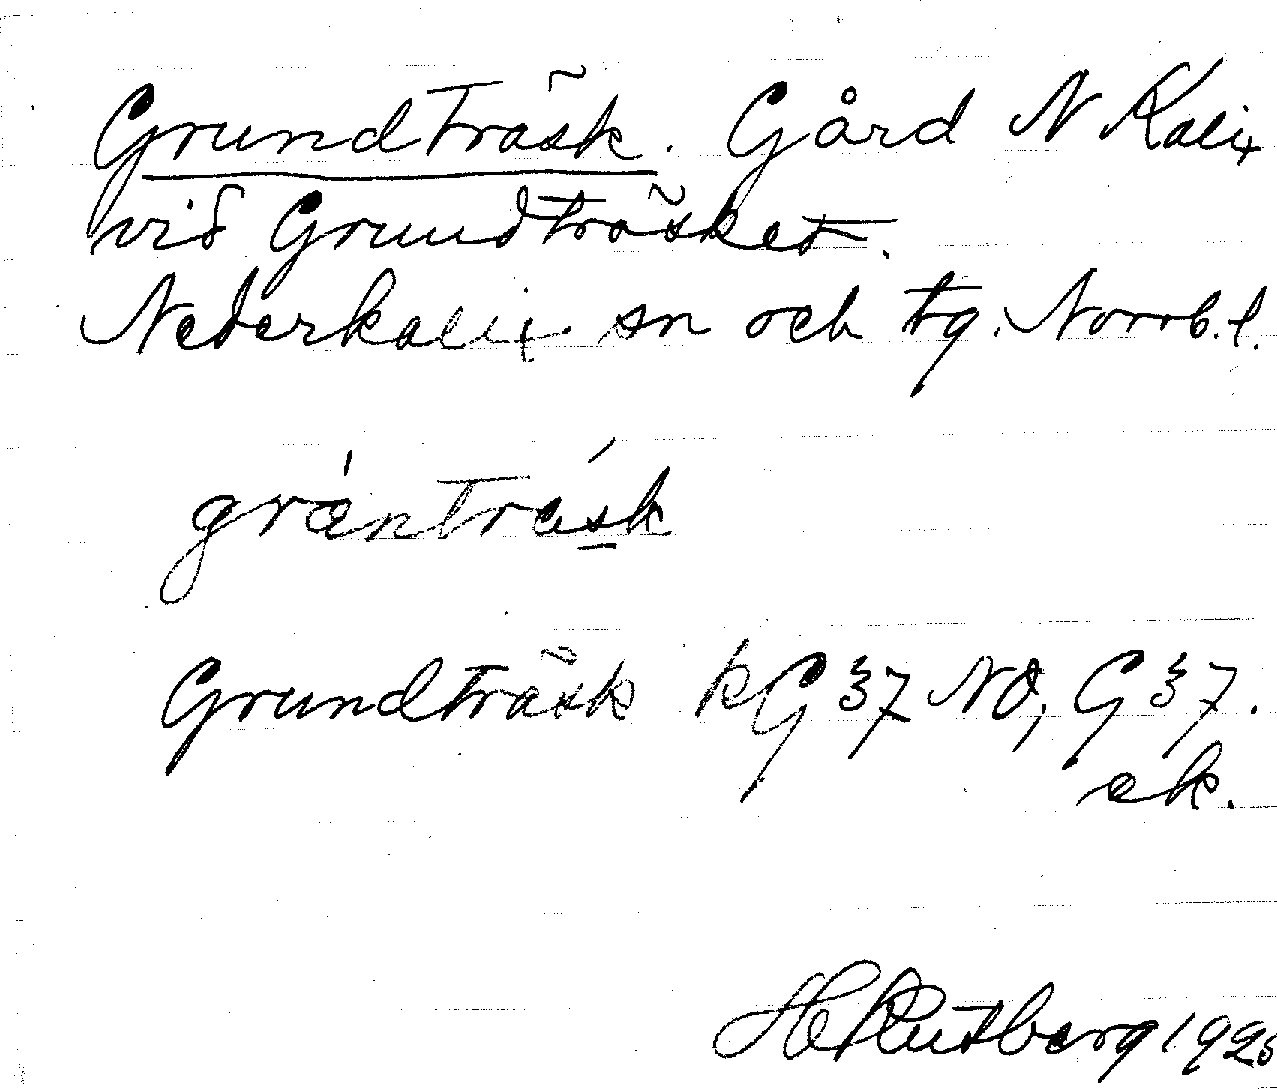 Grundträsk. Gård N Kalix
vid Grundträsket.
Nederkalix sn och tg. Norrb. l.
grǽntrásk
Grundträsk kG 37 NO, G 37.
ek.
H Rutberg 1925